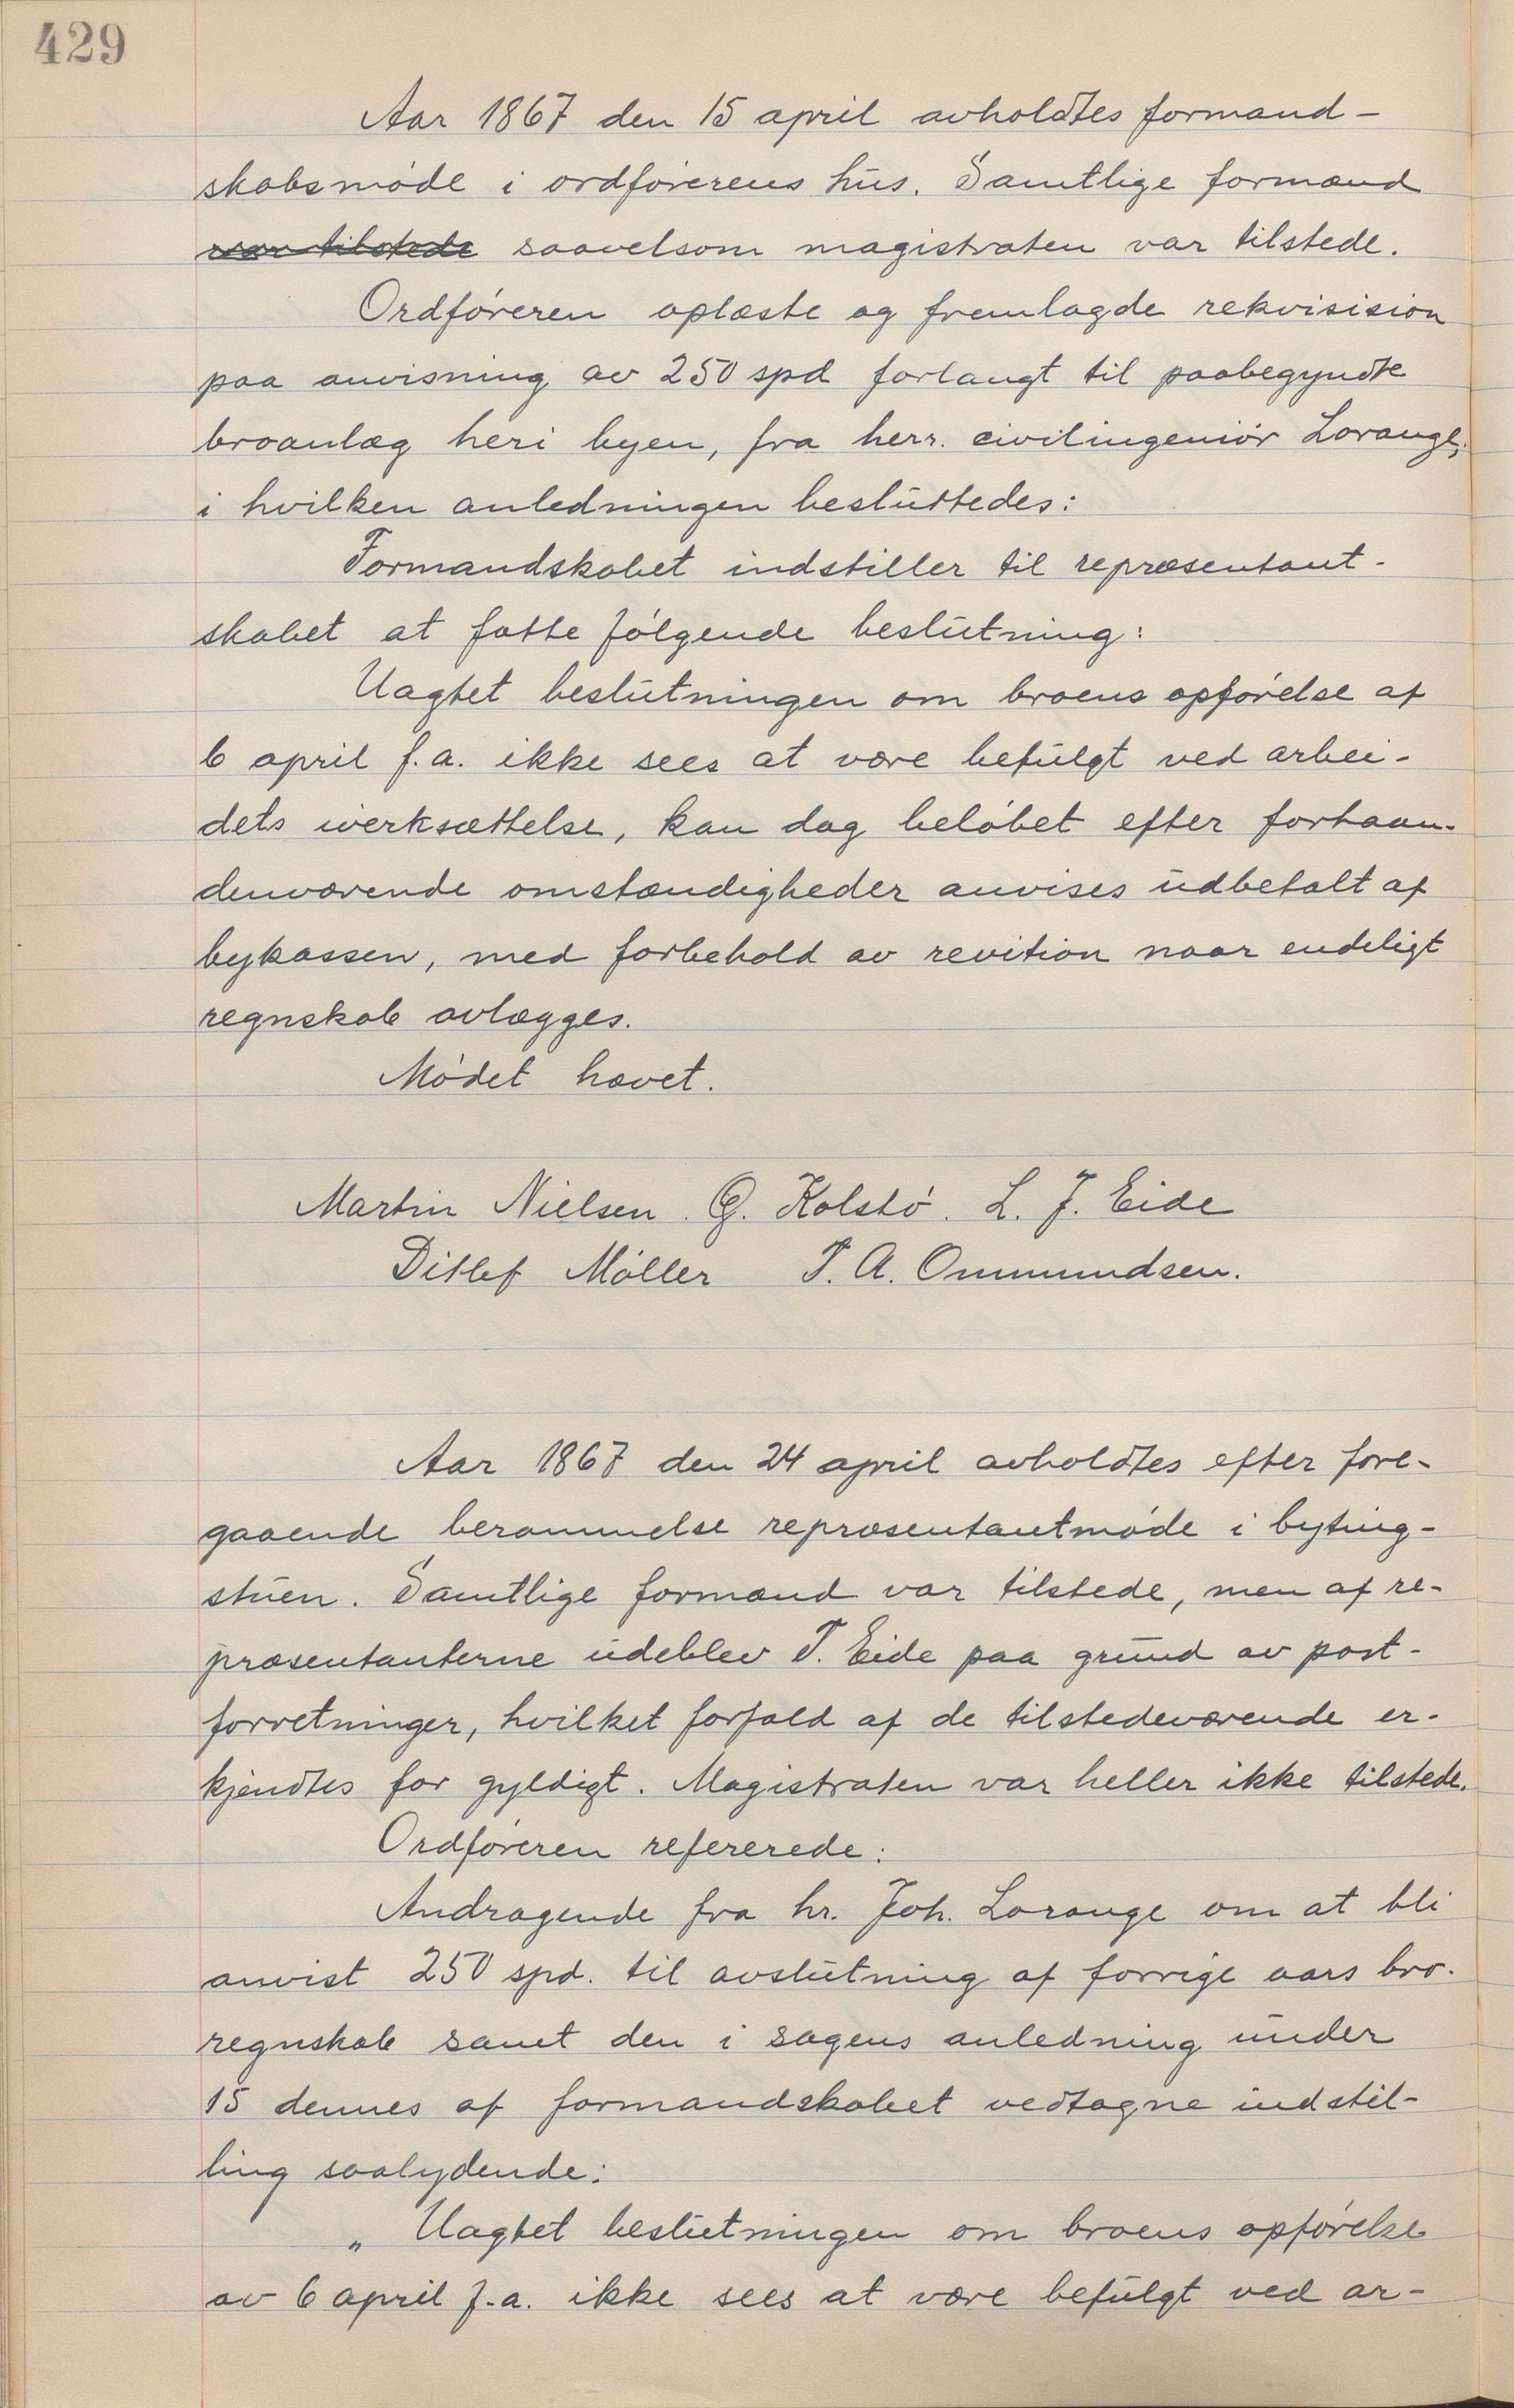 429
Aar 1867 den 15 april avholdtes formand-
skabsmöde i ordförerens hus. Samtlige formænd
var tilstede saavelsom magistraten var tilstede.
Ordföreren oplæste og fremlagde rekvisision
paa anvisning av 250 spd forlangt til paabegyndte
broanlæg heri byen, fra herr. civilingeniör Lorange,
i hvilken anledningen besluttedes:
Formandskabet indstiller til repræsentant-
skabet at fatte fölgende beslutning:
Uagtet beslutningen om broens opförelse af
6 april f.a. ikke sees at være befulgt ved arbei-
dets iverksættelse, kan dog belöbet efter forhaan-
denværende omstændigheder anvises udbetalt af
bykassen, med forbehold av revition naar endeligt
regnskab avlægges.
Mödet hævet.
Martin Nielsen. G. Kolstö. L. J. Eide
Ditlef Möller T. A. Ommundsen.
Aar 1867 den 24 april avholdtes efter fore-
gaaende berammelse repræsentantmöde i byting-
stuen. Samtlige formænd var tilstede, men af re-
præsentanterne udeblev T. Eide paa grund av post-
forretninger, hvilket forfald af de tilstedeværende er-
kjendtes for gyldigt. Magistraten var heller ikke tilstede.
Ordföreren refererede:
Andragende fra hr. Joh. Lorange om at bli
anvist 250 spd. til avslutning af forrige aars bro-
regnskab samt den i sagens anledning under
15 dennes af formandskabet vedtagne indstil-
ling saalydende:
„ Uagtet beslutningen om broens opförelse
av 6 april f.a. ikke sees at være befulgt ved ar-